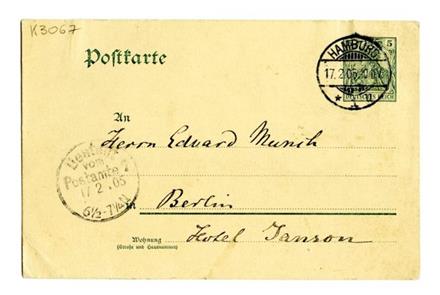 K3067
Postkarte
5
HAMBURG
17. 2. 05
An
DEUTSCHES REICH
Herrn Eduard Munch
Bestellt
vom
Postamte 7
17 2. 05
6½-7½
in
Berlin
Wohnung
(Straße und Hausnummer)
Hotel Janson